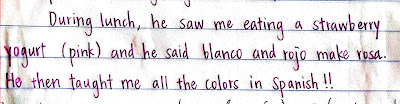 During lunch, he saw me eating a strawberry
yogurt (pink) and he said blanco and rojo make rosa.
He then taught me all the colors in Spanish!!